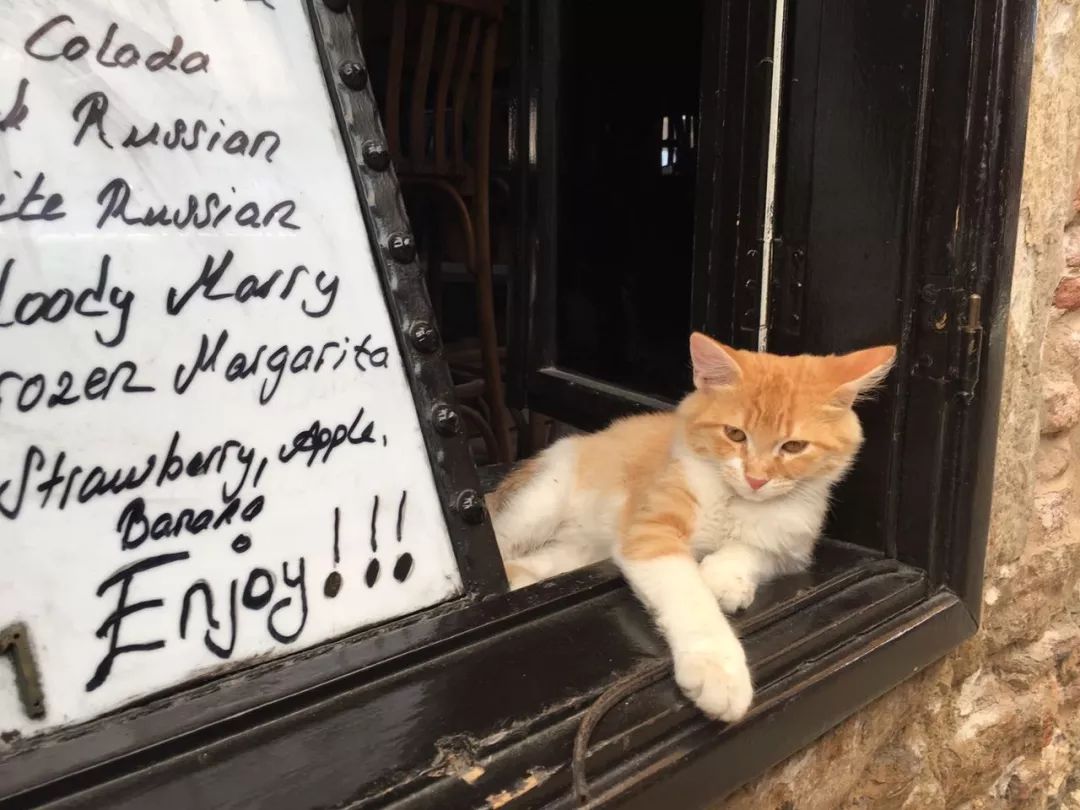 Colada
k Russian
ite Russian
loody Marry
rozen Margarita
Strawberry, Apple,
Banana
Enjoy!!!